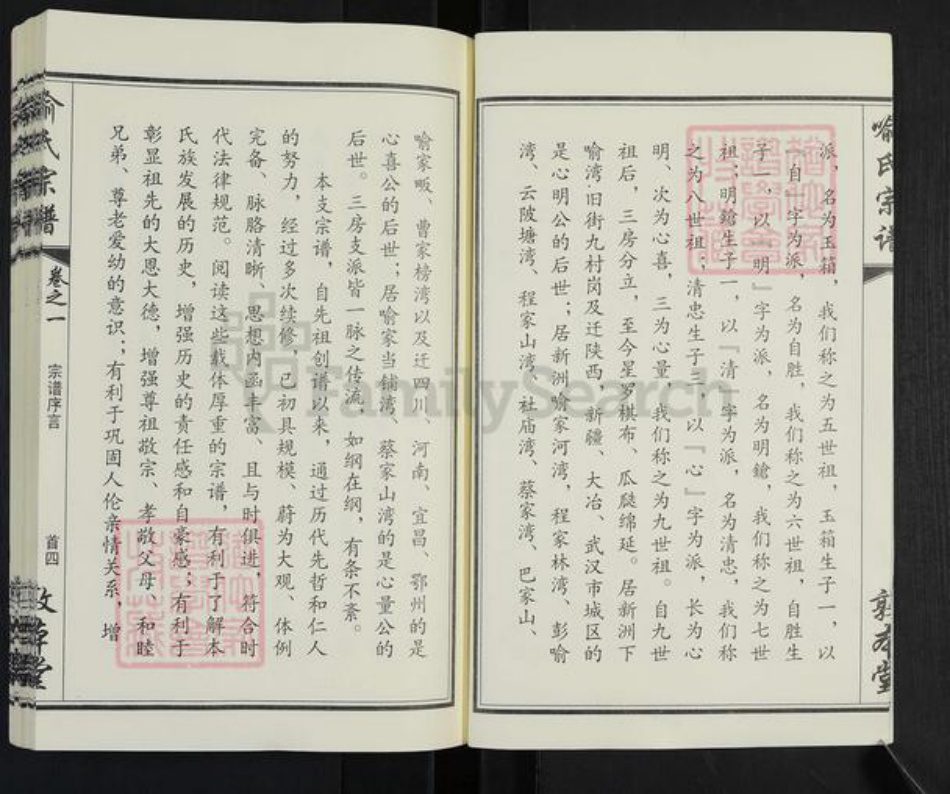 喻氏宗谱
敦本堂
派，名为玉箱，我们称之为五世祖，玉箱生子一，以
「自」字为派，名为自胜，我们称之为六世祖，自胜生
子一，以「明」字为派，名为明鎗，我们称之为七世
祖；明鎗生子一，以「清」字为派，名为清忠，我们称
之为八世祖；清忠生子三，以「心」字为派，长为心
明、次为心喜，三为心量，我们称之为九世祖。自九世
祖后，三房分立，至今星罗棋布、瓜瓞绵延。居新洲下
喻湾、旧街九村岗及迁陕西、新疆、大冶、武汉市城区的
是心明公的后世；居新洲喻家河湾，程家林湾、彭喻
湾、云陂塘湾、程家山湾、社庙湾、蔡家湾、巴家山、
喻家畈、曹家榜湾以及迁四川、河南、宜昌、鄂州的是
心喜公的后世；居喻家当铺湾、蔡家山湾的是心量公的
后世。三房支派皆一脉之传流，如纲在纲，有条不紊。
本支宗谱，自先祖创谱以来，通过历代先哲和仁人
的努力，经过多次续修，已初具规模、蔚为大观、体例
完备、脉胳清晰、思想内函丰富、且与时俱进，符合时
代法律规范。阅读这些载体厚重的宗谱，有利于了解本
氏族发展的历史，增强历史的责任感和自豪感；有利于
彰显祖先的大恩大德，增强尊祖敬宗、孝敬父母、和睦
兄弟、尊老爱幼的意识；有利于巩固人伦亲情关系，增
喻氏宗谱
卷之一
宗谱序言
首四
FamilySearch